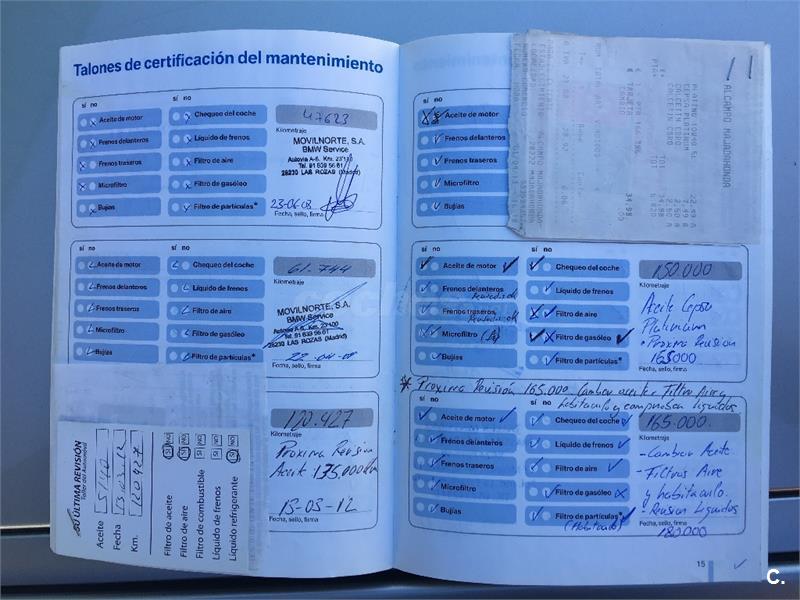 Talones de certificación del mantenimiento
sí no
Aceite de motor
Frenos delanteros
Frenos traseros
Microfiltro
Bujías
Chequeo del coche
Líquido de frenos
Filtro de aire
Filtro de gasóleo
Filtro de partículas*
47623
Kilometraje
MOVILNORTE, S.A.
BMW Service
Autovía A-6. Km. 23'100
Tel. 91 639 56 61
28230 LAS ROZAS (Madrid)
23-06-08
Fecha, sello, firma
sí no
sí no
Aceite de motor
Frenos delanteros
Frenos traseros
Microfiltro
Bujías
Chequeo del coche
Líquido de frenos
Filtro de aire
Filtro de gasóleo
Filtro de partículas*
61.744
Kilometraje
MOVILNORTE, S.A.
BMW Service
Autovía A-6. Km. 23'100
Tel. 91 639 56 61
28230 LAS ROZAS (Madrid)
Fecha, sello, firma
120.427
Kilometraje
Proxima Revision
Aceite 135.000 Km
13-03-12
Fecha, sello, firma
SU ÚLTIMA REVISIÓN
Taller del Automóvil
Aceite 5W40
Fecha 13.03.12
Km. 120427
Filtro de aceite SI NO
Filtro de aire SI NO
Filtro de combustible SI NO
Líquido de frenos SI NO
Líquido refrigerante SI NO
sí no
Aceite de motor
Frenos delanteros
Frenos traseros
Microfiltro
Bujías
ALCAMPO MAJADAHONDA
sí no
sí no
Aceite de motor
Frenos delanteros
Frenos traseros
Microfiltro
Bujías
Chequeo del coche
Líquido de frenos
Filtro de aire
Filtro de gasóleo
Filtro de partículas*
150.000
Kilometraje
Aceite Cepsa
Platinum
Proxima Revision
165000
Fecha, sello, firma
* Proxima Revisión 165.000 Cambiar aceite, Filtro Aire y
habitaculo y comprobar liquidos
sí no
sí no
Aceite de motor
Frenos delanteros
Frenos traseros
Microfiltro
Bujías
Chequeo del coche
Líquido de frenos
Filtro de aire
Filtro de gasóleo
Filtro de partículas*
(Habitaculo)
165.000
Kilometraje
- Cambiar Aceite
- Filtros Aire
y habitaculo.
- Revision Liquidos
180.000
Fecha, sello, firma
15
C.